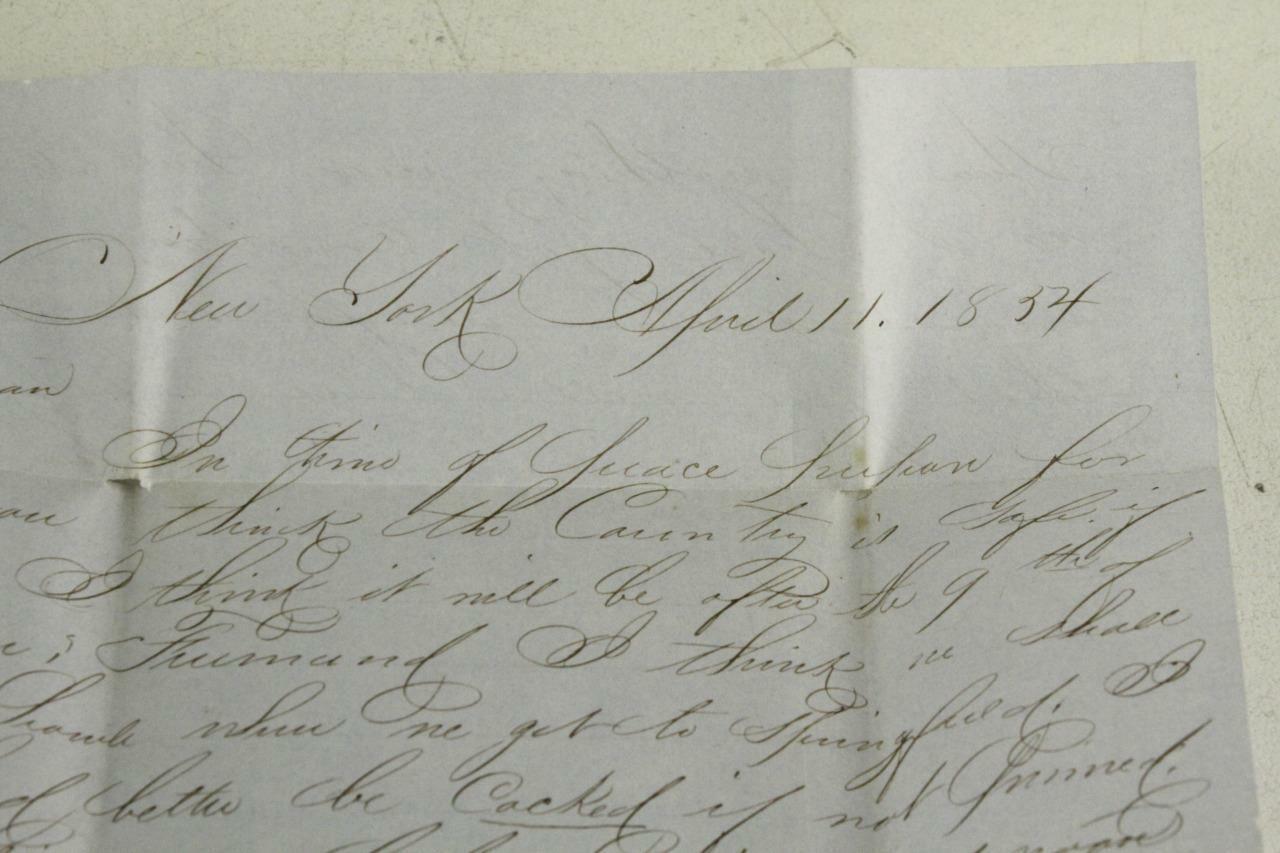 New York April 11. 1854
an
In time of peace prepare for
think the Country is safe. if
I think it will be after the 9th of
Fremand I think we shall
when we get to Springfield. I
better be Cocked if not primed.